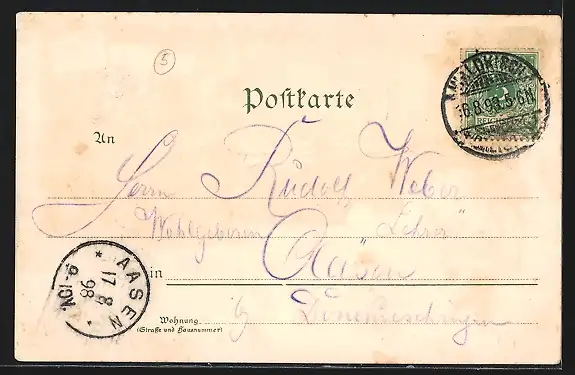 5
Postkarte
WALDKIRCH
16.8.98.5-6N
REICHSPOST
An
Herrn Rudolf Weber
Wohlgeboren Lehrer
in Aasen
b/ Donaueschingen
Wohnung
(Straße und Hausnummer)
AASEN
17 8
98
9-10V.